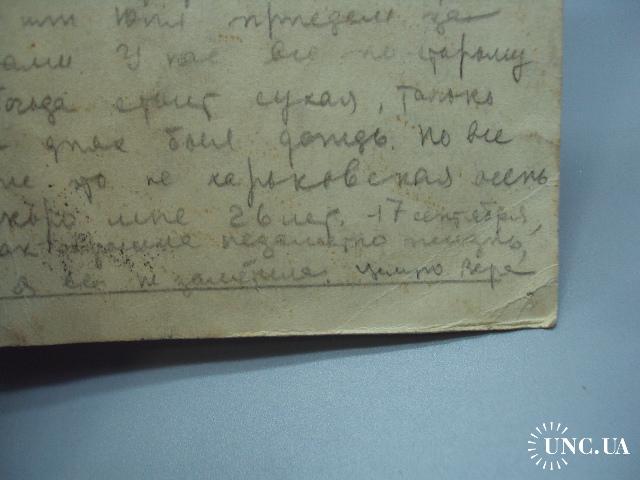 или Юля приедем за
вами У нас все по старому
погода стоит сухая, только
днях был дождь. Но все
же это не харьковская осень
скоро мне 26 лет. 17 сентября,
так незаметно жизнь,
я её не заметила. Целую Вера
UNC.UA